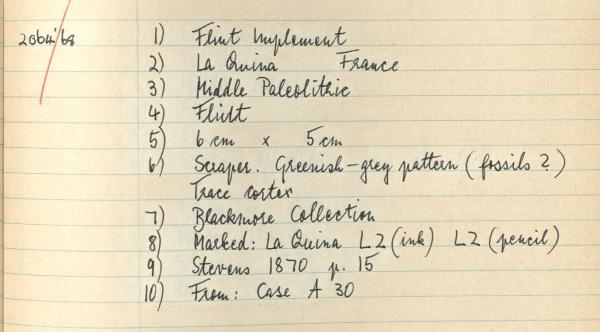 2064'68 1) Flint Implement
2) La Quina France
3) Middle Paleolithic
4) Flint
5) 6 cm x 5 cm
6) Scraper. Greenish-grey pattern (fossils?)
Trace cortex
7) Blackmore Collection
8) Marked: La Quina L2 (ink) L2 (pencil)
9) Stevens 1870 p. 15
10) From: Case A 30